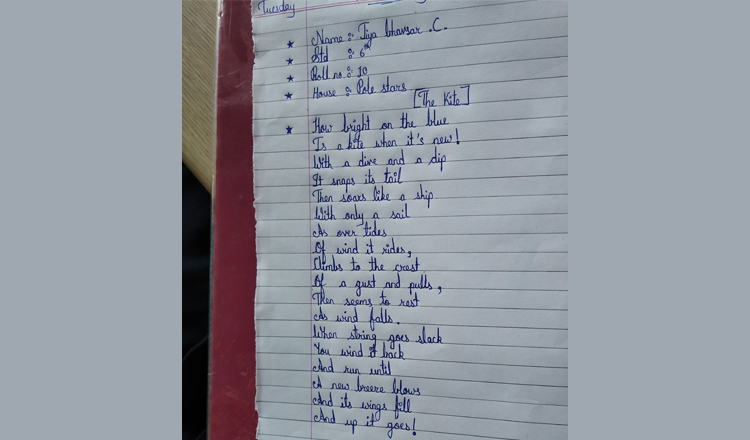 Tuesday
★ Name : Tiya bhavsar .C.
★ Std : 6th
★ Roll no. : 10
★ House : Pole stars
[The Kite]
★ How bright on the blue
Is a kite when it's new!
With a dive and a dip
It snaps its tail
Then soars like a ship
With only a sail
As over tides
Of wind it rides,
Climbs to the crest
Of a gust and pulls,
Then seems to rest
As wind falls.
When string goes slack
You wind it back
And run until
A new breeze blows
And its wings fill
And up it goes!